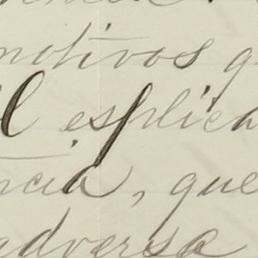 motivos q
il esplica
ncia, que
adversa